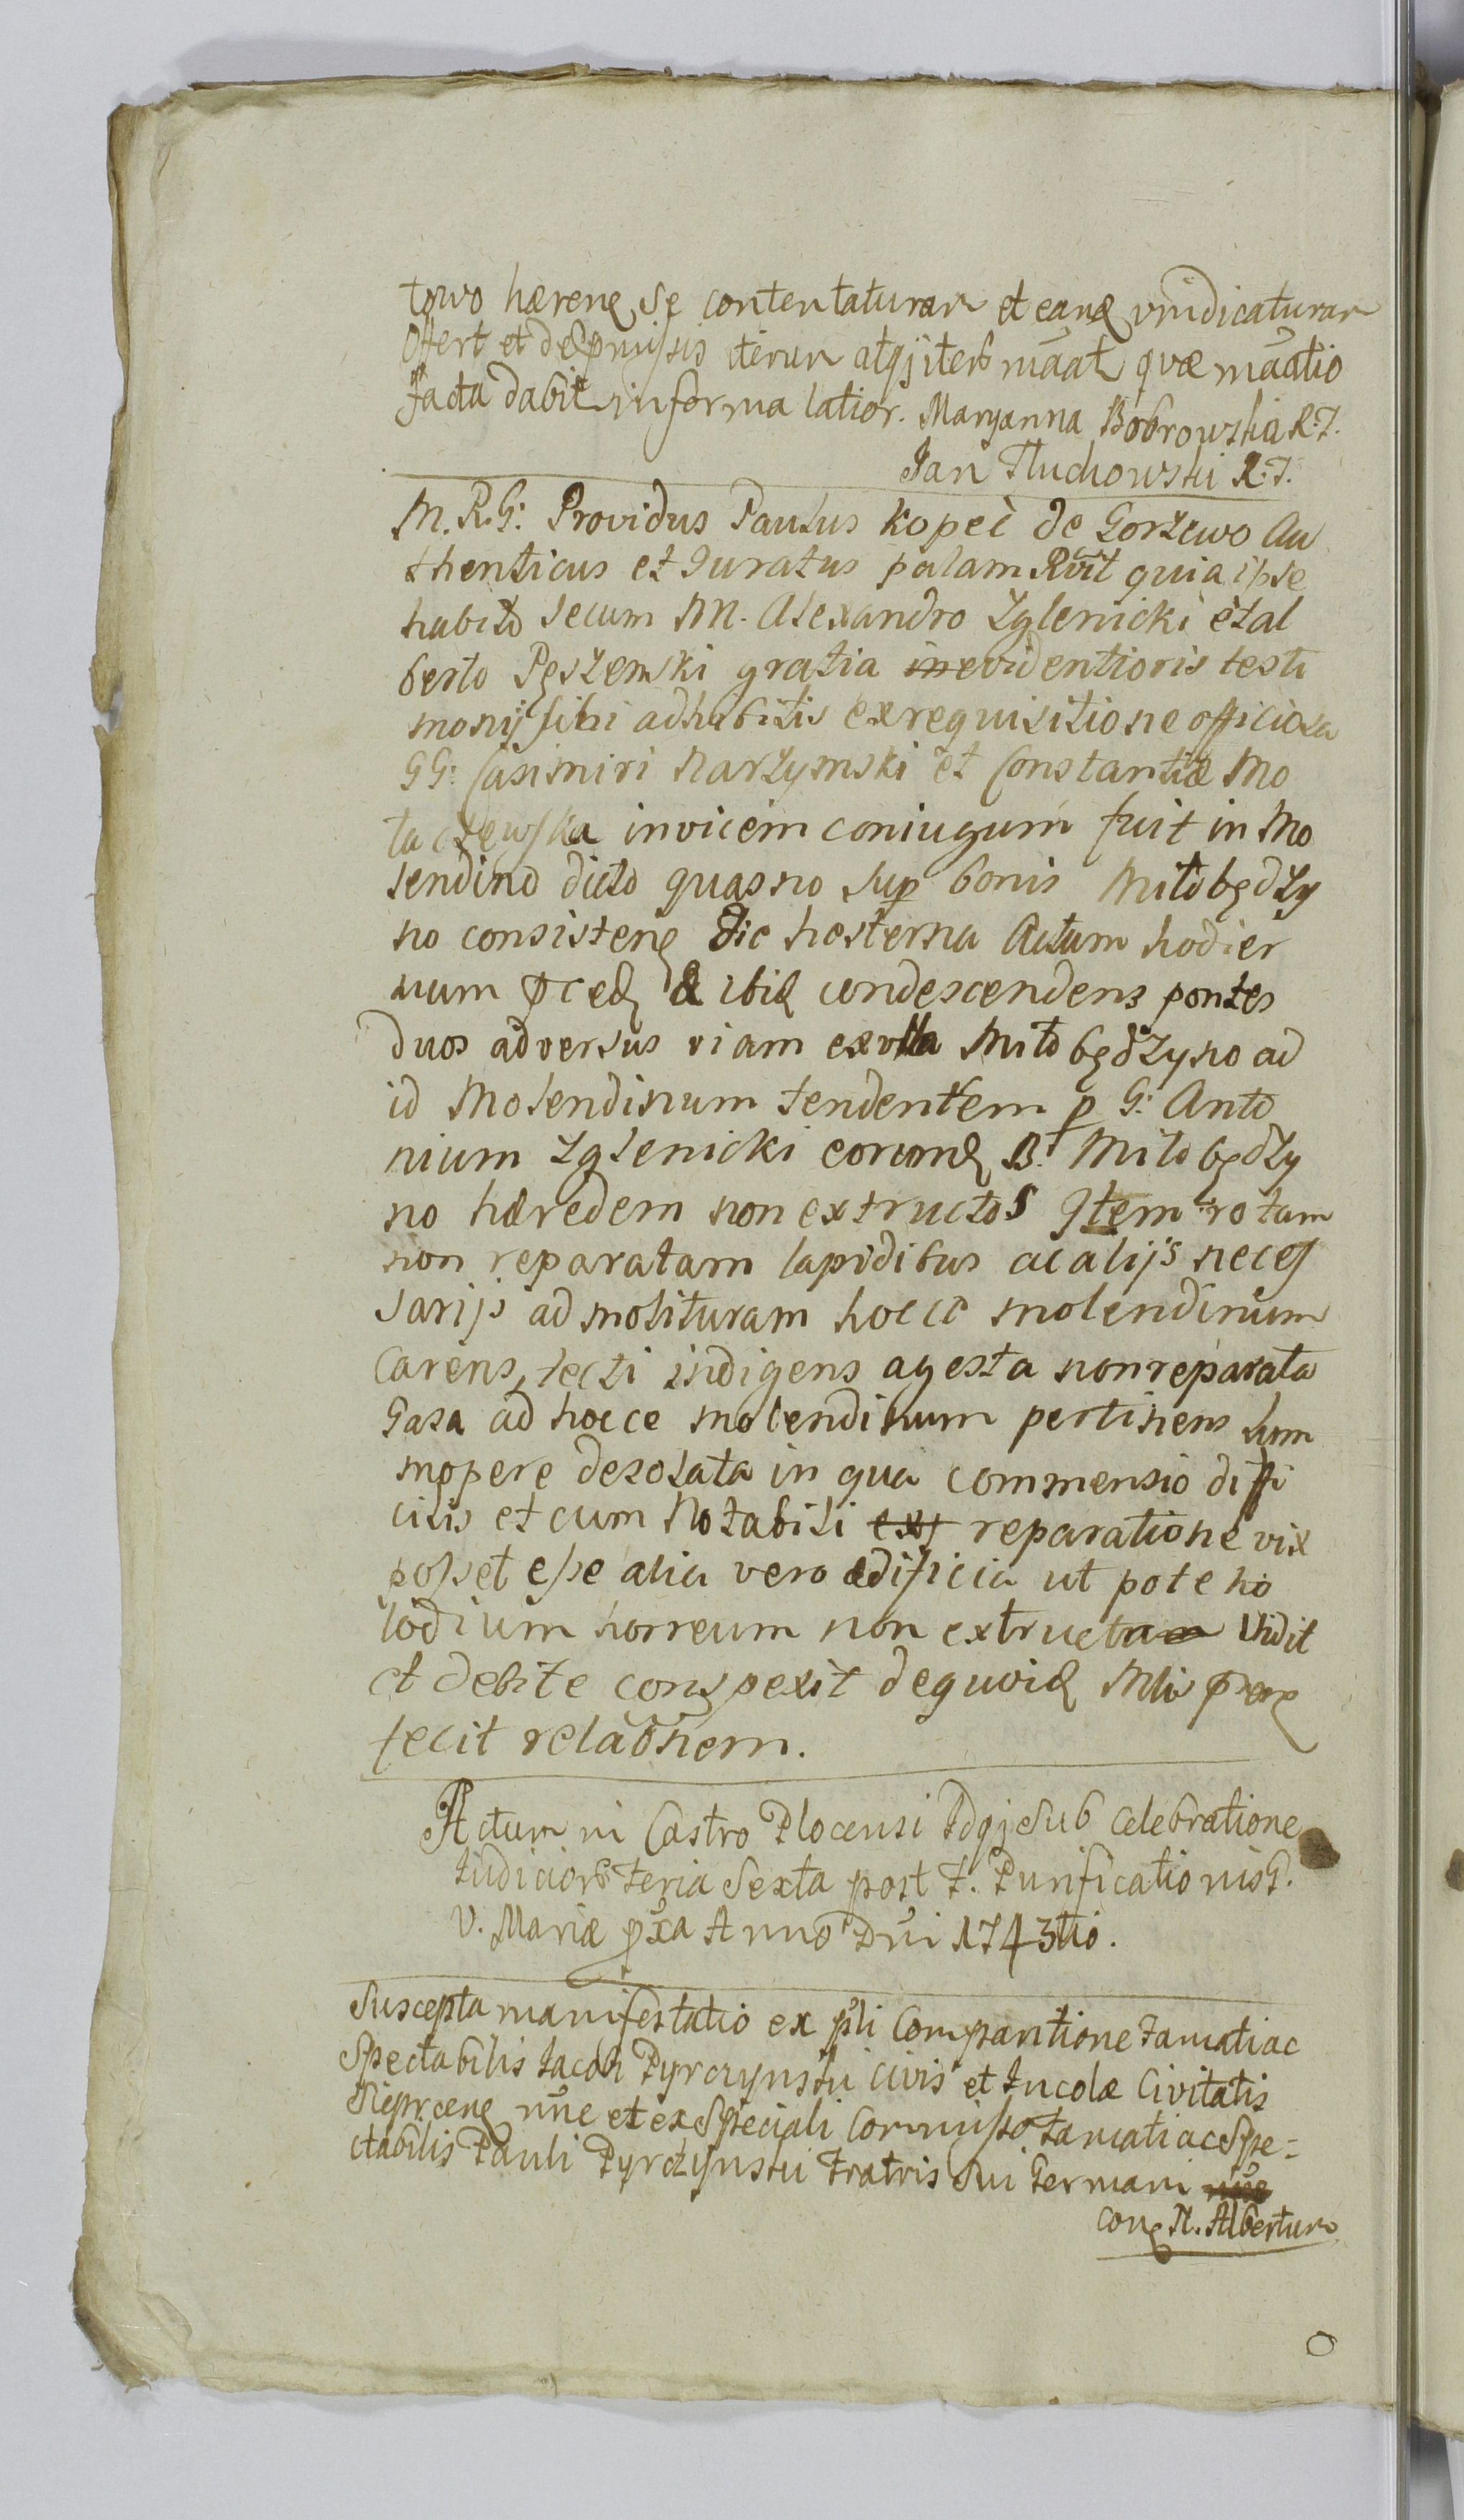 towo hærenę se contentaturam et eandę vindicaturam
Offert et de præmissis iterum atq; iterū māat, quæ māatio
Facta dabit in forma latior. Maryanna Bobrowska R.J.
Jan Tłuchowski R.J.
M. R. G: Providus Paulus Kopeć de Gorzewo Au
thenticus et Juratus palam Rvit quia ipse
habito secum M. Alexandro Zglenicki et al
berto Pęszewski gratia evidentioris testi
monij sibi adhibitis ex requisitione officiosa
GG: Casimiri Narzymski et Constantiæ Mo
ta czewska invicem coniugum fuit in Mo
lendino dicto quasno sup bonis Miłobędzy
no consistenę die hesterna Actum hodier
num ꝓcedę & ibid condescendens pontes
duos adversus viam ex villa Miłobędzyno ad
id Molendinum tendentem p G: Anto
nium Zglenicki eorumdę B. Miłobędzy
no hæredem non extructos Item rotam
non reparatam lapidibus ac alijs neces
sarijs ad molituram hocce molendinum
Carens, tecti indigens agesta non reparata
Casa ad hocce molendinum pertinens sum
mopere desolata in qua commensio diffi
cilis et cum Notabili reparatione vix
posset esse alia vero ædificia ut pote ho
lodium horreum non extructa Vidit
et debite conspexit de quoid
fecit relaōnem.
Actum in Castro Plocensi Idq; sub celebratione
Iudiciorū Feria Sexta post F. Purificationis B.
V. Mariæ pxa Anno Dni 1743tio.
Suscepta manifestatio ex pñli Comparitione Famati ac
Spectabilis Iacobi Pyrczynski Civis et Incolæ Civitatis
Rypinenę nñe et ex Speciali Commisso Famati ac Spe=
ctabilis Pauli Pyrczynski Fratris sui Germani
conę N. Albertum